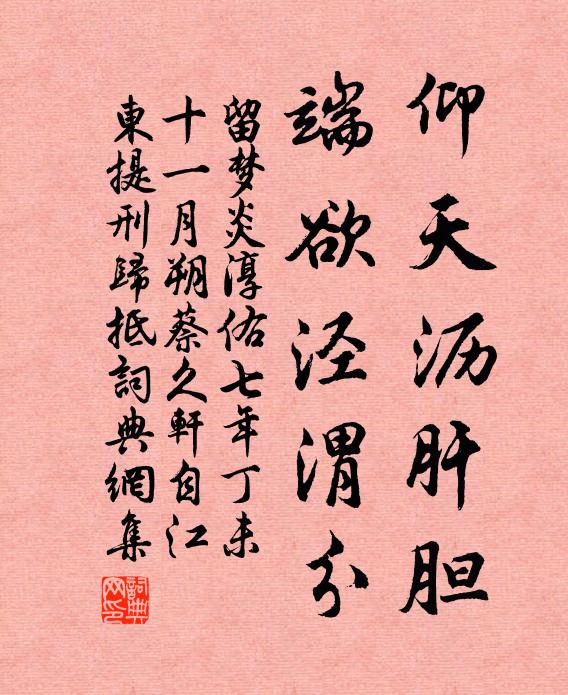 仰天沥肝胆
端欲泾渭分
留梦炎淳佑七年丁未
十一月朔蔡久軒自江
東提刑歸抵詞典網集
詞典网印